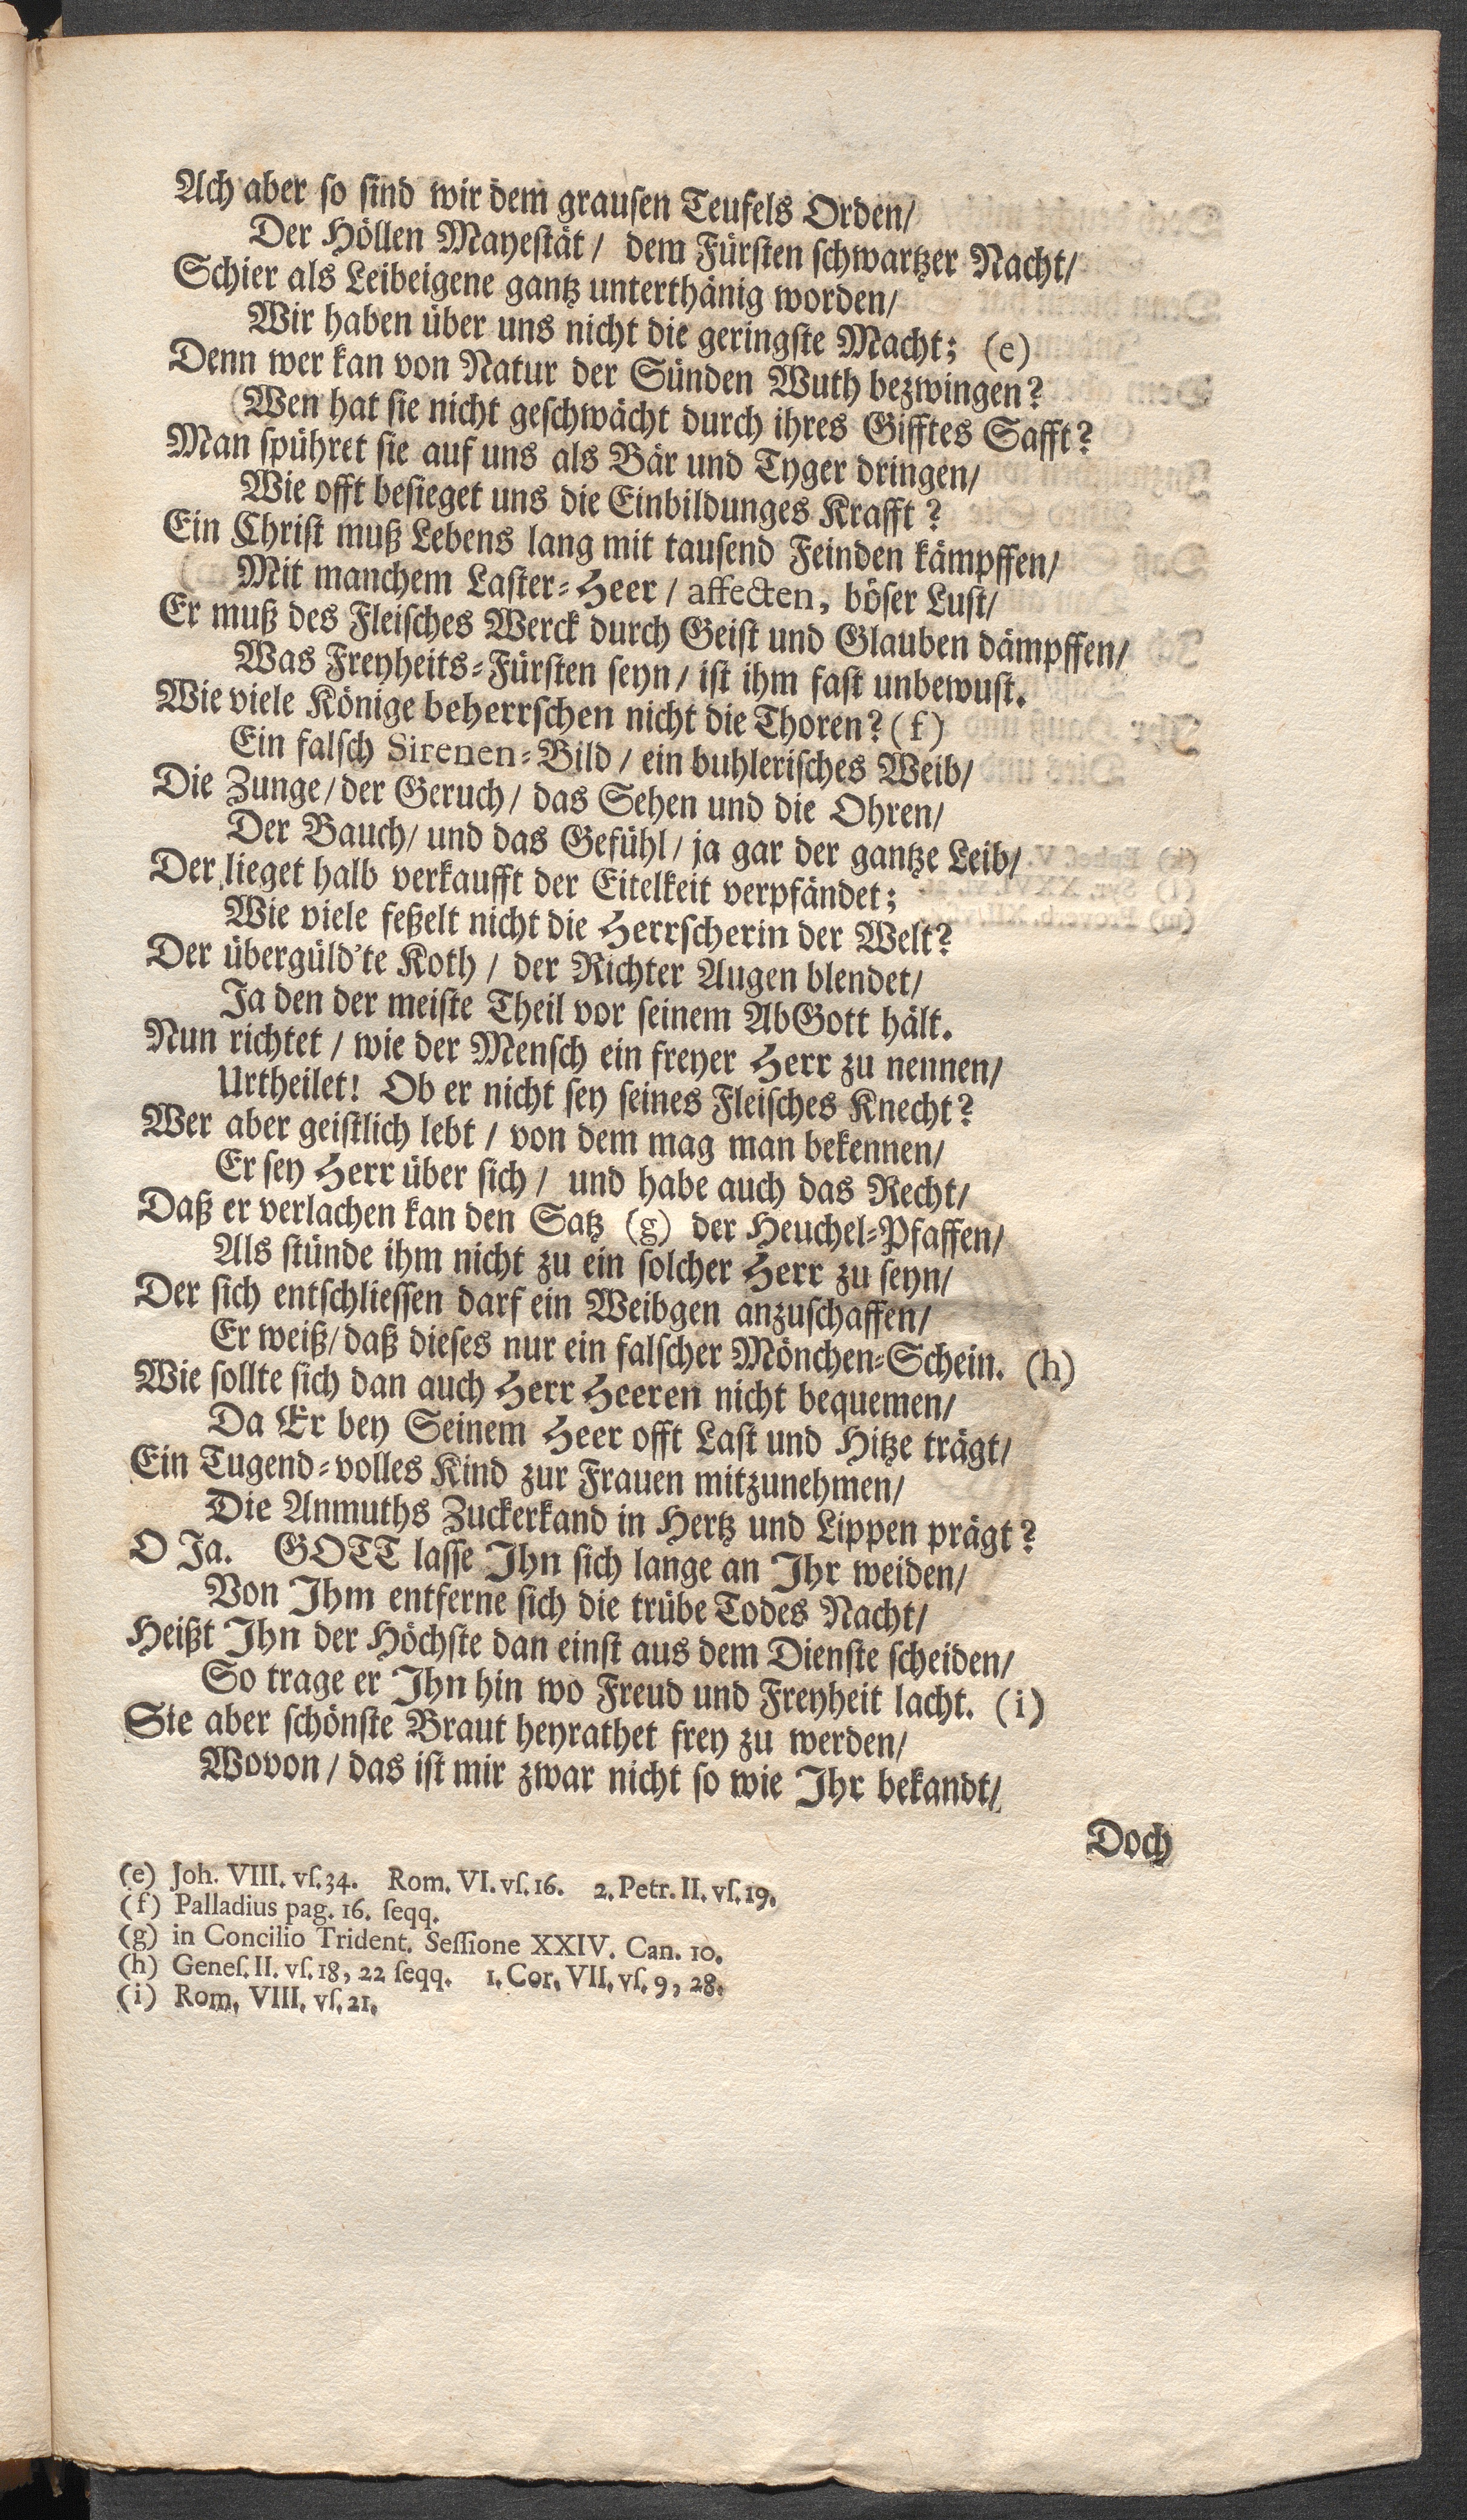 Ach aber so sind wir dem grausen Teufels Orden/
Der Höllen Mayestät / dem Fürsten schwartzer Nacht/
Schier als Leibeigene gantz unterthänig worden/
Wir haben über uns nicht die geringste Macht; (e)
Denn wer kan von Natur der Sünden Wuth bezwingen?
(Wen hat sie nicht geschwächt durch ihres Gifftes Safft?
Man spühret sie auf uns als Bär und Tyger dringen/
Wie offt besieget uns die Einbildunges Krafft?
Ein Christ muß Lebens lang mit tausend Feinden kämpffen/
Mit manchem Laster-Heer / affecten, böser Lust/
Er muß des Fleisches Werck durch Geist und Glauben dämpffen/
Was Freyheits-Fürsten seyn / ist ihm fast unbewust.
Wie viele Könige beherrschen nicht die Thoren? (f)
Ein falsch Sirenen-Bild / ein buhlerisches Weib/
Die Zunge/ der Geruch/ das Sehen und die Ohren/
Der Bauch/ und das Gefühl/ ja gar der gantze Leib/
Der lieget halb verkaufft der Eitelkeit verpfändet;
Wie viele feßelt nicht die Herrscherin der Welt?
Der übergüld'te Koth / der Richter Augen blendet/
Ja den der meiste Theil vor seinem AbGott hält.
Nun richtet / wie der Mensch ein freyer Herr zu nennen/
Urtheilet! Ob er nicht sey seines Fleisches Knecht?
Wer aber geistlich lebt / von dem mag man bekennen/
Er sey Herr über sich / und habe auch das Recht/
Daß er verlachen kan den Satz (g) der Heuchel-Pfaffen/
Als stünde ihm nicht zu ein solcher Herr zu seyn/
Der sich entschliessen darf ein Weibgen anzuschaffen/
Er weiß/ daß dieses nur ein falscher Mönchen-Schein. (h)
Wie sollte sich dan auch Herr Heeren nicht bequemen/
Da Er bey Seinem Heer offt Last und Hitze trägt/
Ein Tugend-volles Kind zur Frauen mitzunehmen/
Die Anmuths Zuckerkand in Hertz und Lippen prägt?
O Ja. GOTT lasse Ihn sich lange an Ihr weiden/
Von Ihm entferne sich die trübe Todes Nacht/
Heißt Ihn der Höchste dan einst aus dem Dienste scheiden/
So trage er Ihn hin wo Freud und Freyheit lacht. (i)
Sie aber schönste Braut heyrathet frey zu werden/
Wovon / das ist mir zwar nicht so wie Ihr bekandt/
Doch
(e) Joh. VIII. vſ. 34. Rom. VI. vſ. 16. 2. Petr. II. vſ. 19.
(f) Palladius pag. 16. ſeqq.
(g) in Concilio Trident. Seſſione XXIV. Can. 10.
(h) Geneſ. II. vſ. 18, 22 ſeqq. 1. Cor. VII. vſ. 9, 28.
(i) Rom. VIII. vſ. 21.